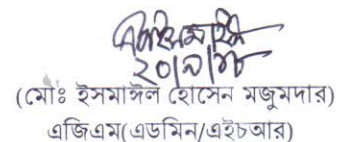 ২০/৯/১৮
(মোঃ ইসমাঈল হোসেন মজুমদার)
এজিএম(এডমিন/এইচআর)